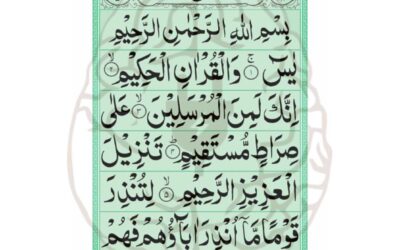 بِسْمِ اللهِ الرَّحْمٰنِ الرَّحِيْمِ
يٰسٓ ۚ﴿۱﴾ وَالْقُرْاٰنِ الْحَكِيْمِ ۙ﴿۲﴾
اِنَّكَ لَمِنَ الْمُرْسَلِيْنَ ۙ﴿۳﴾ عَلٰى
صِرَاطٍ مُّسْتَقِيْمٍ ؕ﴿۴﴾ تَنْزِيْلَ
الْعَزِيْزِ الرَّحِيْمِ ۙ﴿۵﴾ لِتُنْذِرَ
قَوْمًا مَّاۤ اُنْذِرَ اٰبَآؤُهُمْ فَهُمْ